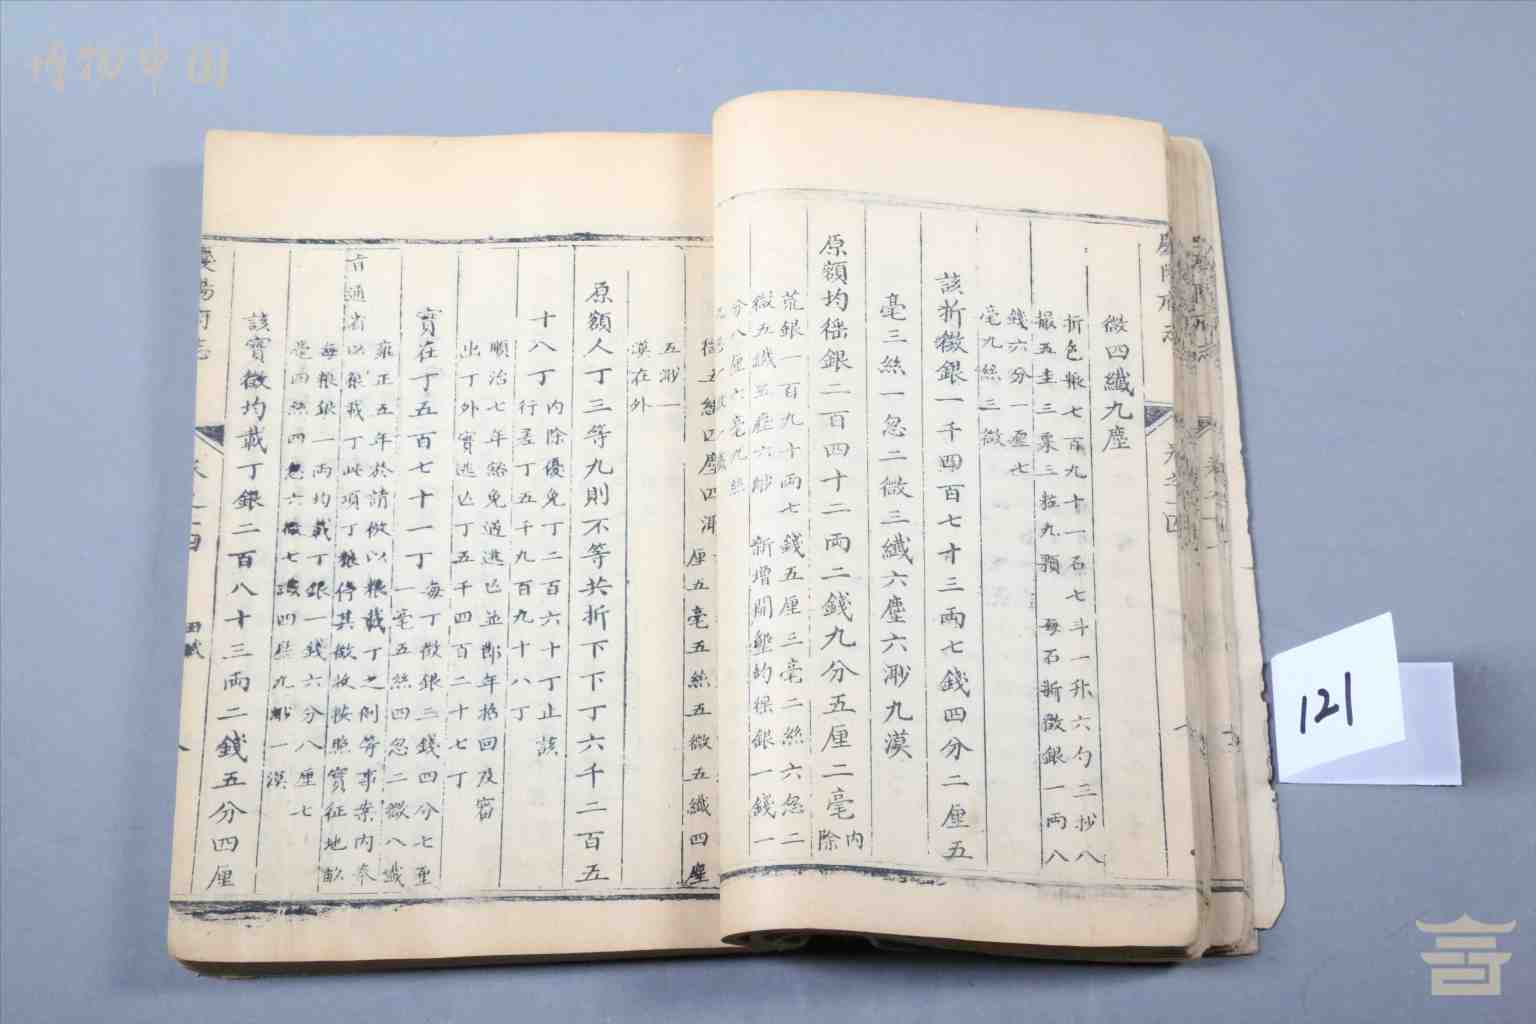 博物中国
微四纖九塵
折色粮七百九十一石七斗一升六勺三抄八
撮五圭三粟三粒九顆 每石折徵銀一兩八
錢六分一厘七
毫九絲三微
該折徵銀一千四百七十三兩七錢四分二厘五
毫三絲一忽二微三纖六塵六渺九漠
原額均徭銀二百四十二兩二錢九分五厘二毫內除
荒銀一百九十兩七錢五厘三毫二絲六忽二
微五纖五塵六渺 新增開墾均徭銀一錢一
分八厘六毫九絲
厘五毫五絲五微五纖四塵
五渺一
漠在外
原額人丁三等九則不等共折下下丁六千二百五
十八丁 內除優免丁二百六十丁止該
行差丁五千九百九十八丁
順治七年豁免逃亡並節年招回及審
出丁外實逃亡丁五千四百二十七丁
實在丁五百七十一丁 每丁徵銀三錢四分七厘
一毫五絲四忽二微八纖
雍正五年於請倣以粮載丁之例等事案內奉
旨通省以粮載丁此項丁粮停其徵收俱照實征地畝
每粮銀一兩均載丁銀一錢六分八厘七
毫四絲四忽六微七纖四塵九渺一漠
該實徵均載丁銀二百八十三兩二錢五分四厘
慶陽府志
卷之四
田賦
121